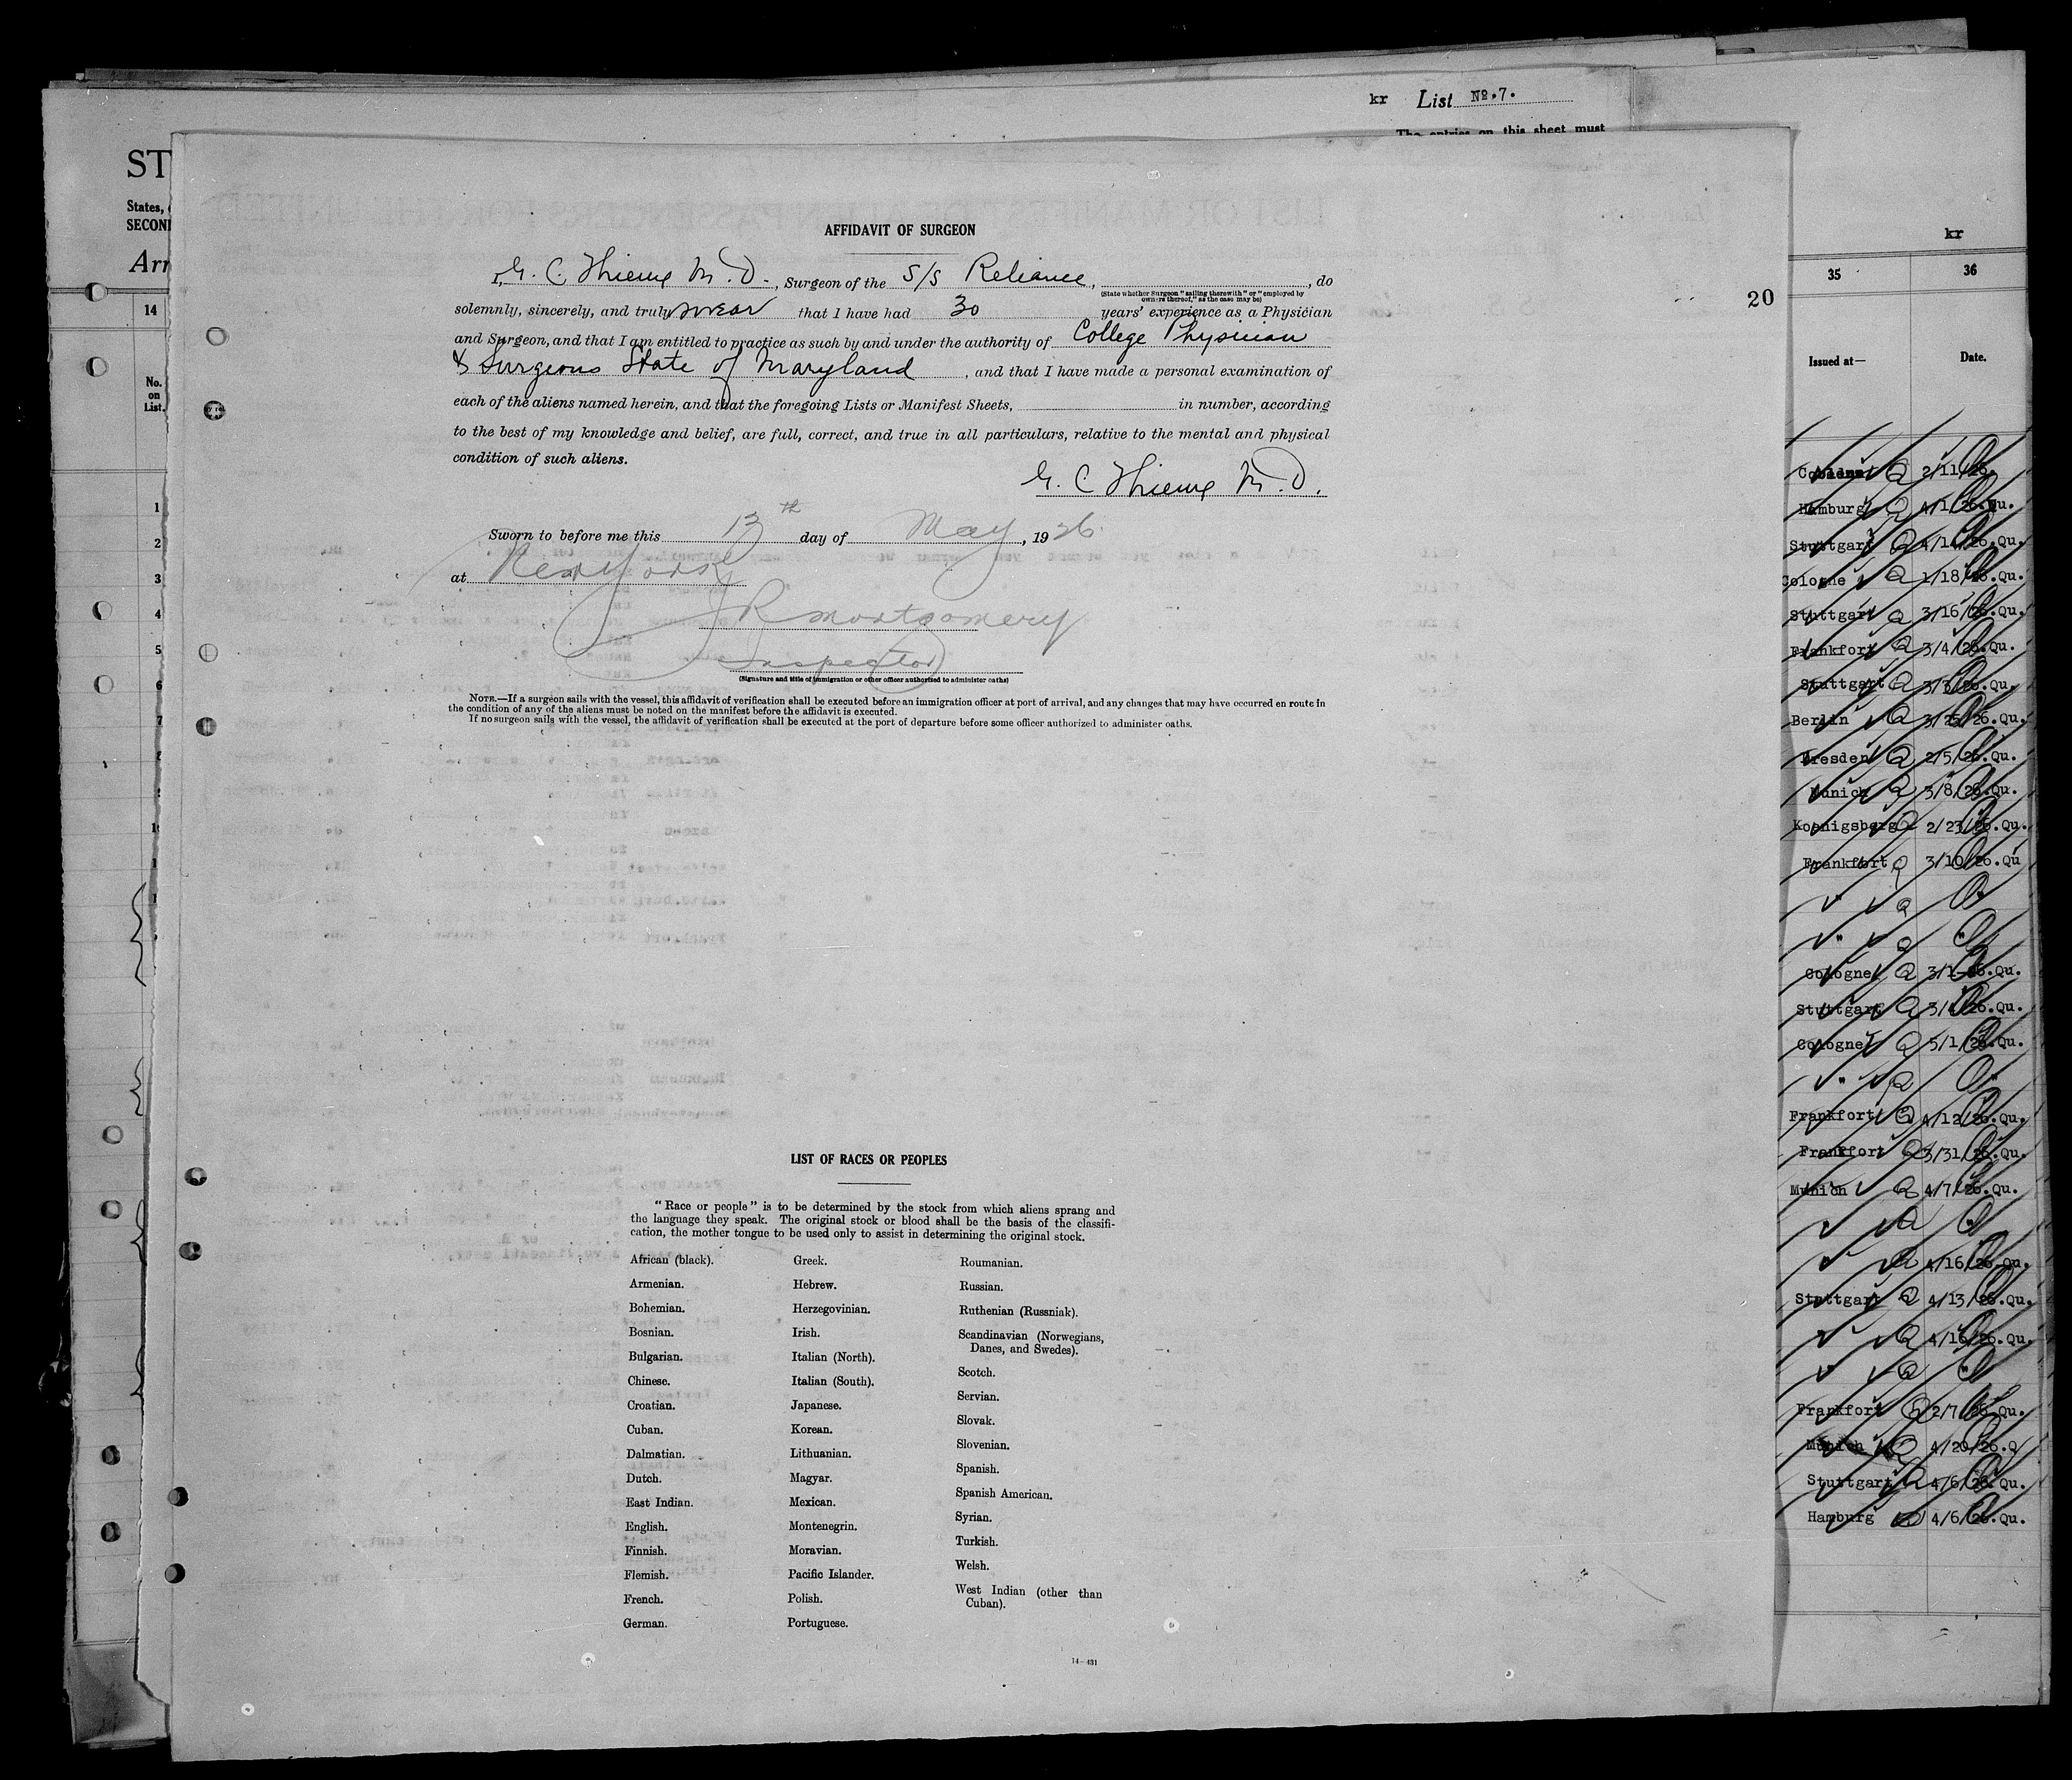 kr List No. 7.
The entries on this sheet must
ST
States,
SECON
Arr
14
No.
on
List.
1
2
3
4
5
6
7
20
AFFIDAVIT OF SURGEON
I, G. C. Thieme M.D., Surgeon of the S/S Reliance, , do
(State whether Surgeon "sailing therewith" or "employed by
owners thereof," as the case may be)
solemnly, sincerely, and truly swear that I have had 30 years' experience as a Physician
and Surgeon, and that I am entitled to practice as such by and under the authority of College Physician
& Surgeons State of Maryland , and that I have made a personal examination of
each of the aliens named herein, and that the foregoing Lists or Manifest Sheets, in number, according
to the best of my knowledge and belief, are full, correct, and true in all particulars, relative to the mental and physical
condition of such aliens.
G. C. Thieme M.D.
Sworn to before me this 13th day of May, 1926
at New York
J R Montgomery
Inspector
(Signature and title of immigration or other officer authorized to administer oaths)
NOTE.—If a surgeon sails with the vessel, this affidavit of verification shall be executed before an immigration officer at port of arrival, and any changes that may have occurred en route in
the condition of any of the aliens must be noted on the manifest before the affidavit is executed.
If no surgeon sails with the vessel, the affidavit of verification shall be executed at the port of departure before some officer authorized to administer oaths.
LIST OF RACES OR PEOPLES
"Race or people" is to be determined by the stock from which aliens sprang and
the language they speak. The original stock or blood shall be the basis of the classifi-
cation, the mother tongue to be used only to assist in determining the original stock.
African (black).
Armenian.
Bohemian.
Bosnian.
Bulgarian.
Chinese.
Croatian.
Cuban.
Dalmatian.
Dutch.
East Indian.
English.
Finnish.
Flemish.
French.
German.
Greek.
Hebrew.
Herzegovinian.
Irish.
Italian (North).
Italian (South).
Japanese.
Korean.
Lithuanian.
Magyar.
Mexican.
Montenegrin.
Moravian.
Pacific Islander.
Polish.
Portuguese.
Roumanian.
Russian.
Ruthenian (Russniak).
Scandinavian (Norwegians,
Danes, and Swedes).
Scotch.
Servian.
Slovak.
Slovenian.
Spanish.
Spanish American.
Syrian.
Turkish.
Welsh.
West Indian (other than
Cuban).
14—431
kr
35 36
Issued at— Date.
2/11/26.
Hamburg Q 4/1/26.Qu.
Stuttgart Q 4/14/26.Qu.
Cologne Q 1/18/26.Qu.
Stuttgart Q 3/16/26.Qu.
Frankfort Q 3/4/26.Qu.
Stuttgart Q 3/3/26.Qu.
Berlin Q 3/25/26.Qu.
Dresden Q 2/5/26.Qu.
Munich Q 3/8/26.Qu.
Koenigsberg Q 2/23/26.Qu.
Frankfort Q 3/10/26.Qu
" Q
" Q "
Cologne Q 3/1-26.Qu.
Stuttgart Q 3/4/26.Qu.
Cologne Q 5/1/26.Qu.
" Q "
Frankfort Q 4/12/26.Qu.
Frankfort Q 3/31/26.Qu.
Munich Q 4/7/26.Qu.
" Q "
" Q 4/16/26.Qu.
Stuttgart Q 4/13/26.Qu.
" Q 4/16/26.Qu.
" Q "
Frankfort Q 2/7/26.Qu.
Munich Q 4/20/26.Q
Stuttgart Q 4/6/26.Qu.
Hamburg Q 4/6/26.Qu.